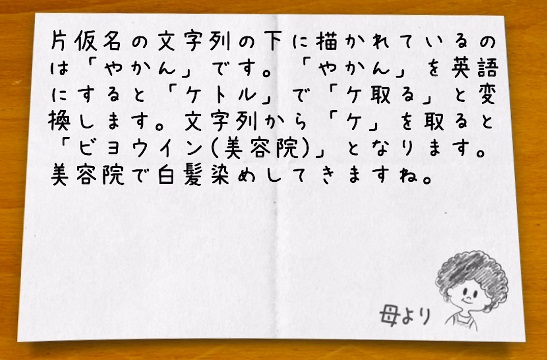 片仮名の文字列の下に描かれているの
は「やかん」です。「やかん」を英語
にすると「ケトル」で「ケ取る」と変
換します。文字列から「ケ」を取ると
「ビヨウイン(美容院)」となります。
美容院で白髪染めしてきますね。
母より